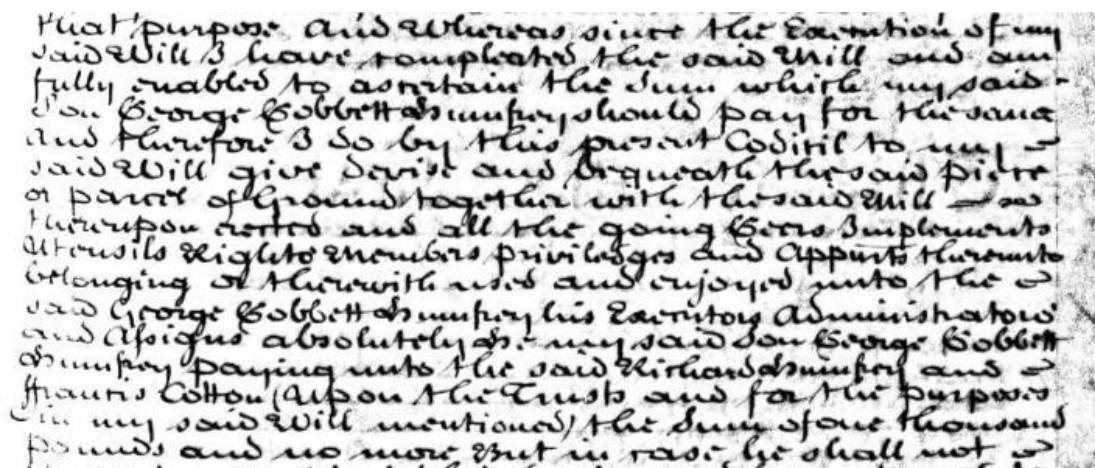 that purpose And Whereas since the Execution of my
said Will I have compleated the said Mill and am
fully enabled to ascertain the Sum which my said
Son George Gobbett Humfrey should pay for the same
And therefore I do by this present Codicil to my
said Will give devise and bequeath the said piece
or parcel of Ground together with the said Mill so
thereupon erected and all the going Geers Implements
Utensils Rights Members priviledges and Appurts thereunto
belonging or therewith used and enjoyed unto the
said George Gobbett Humfrey his Executors Administrators
and Assigns absolutely He my said Son George Gobbett
Humfrey paying unto the said Richard Humfrey and
ffrancis Cotton (Upon the Trusts and for the purposes
in my said Will mentioned) the Sum of one thousand
pounds and no more But in case he shall not